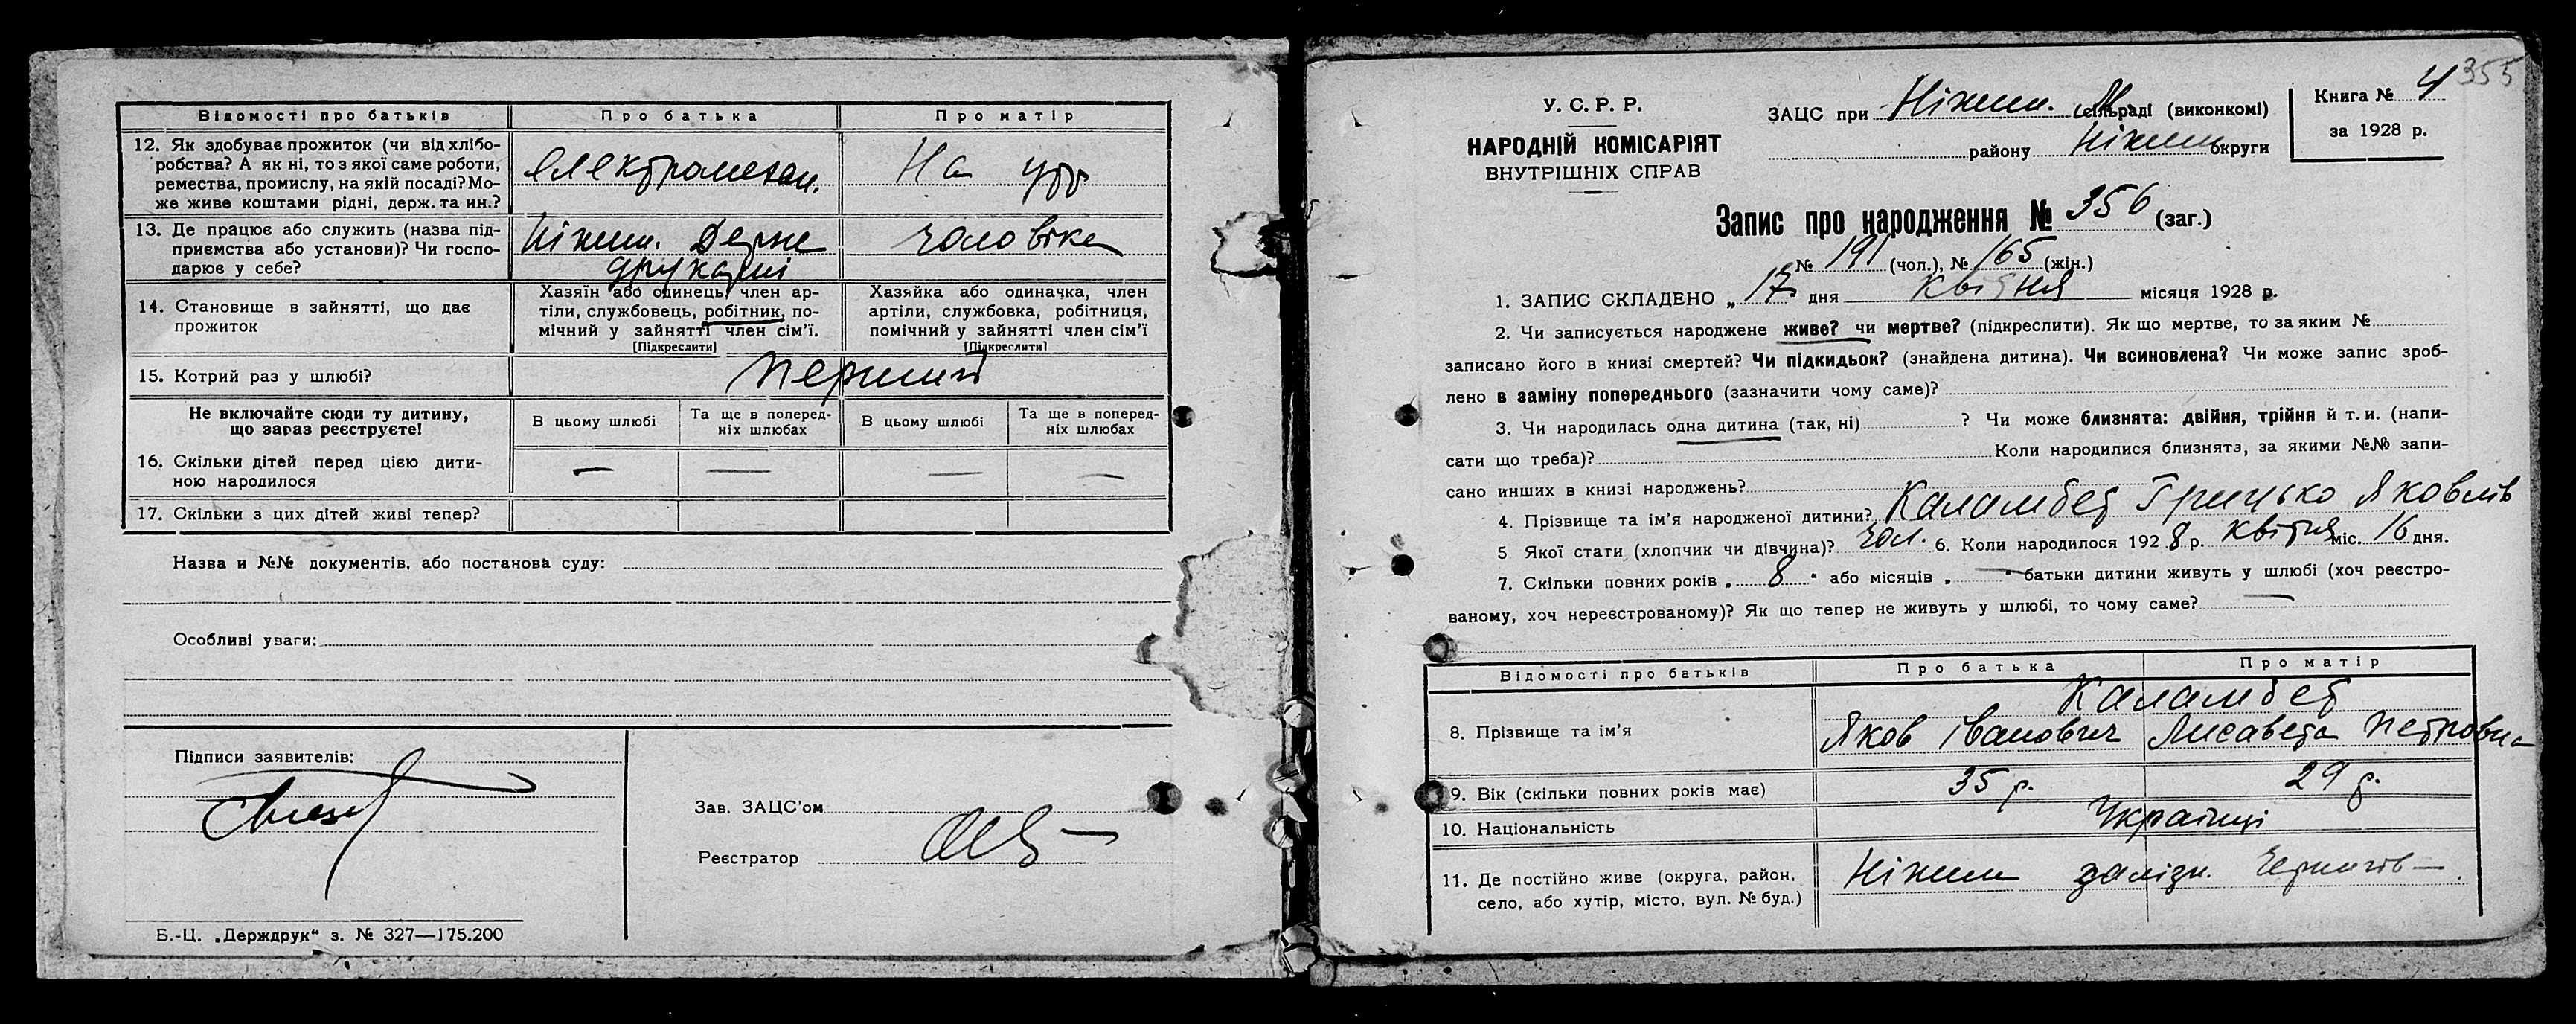 Відомості про батьків Про батька Про матір
12. Як здобуває прожиток (чи від хлібо-
робства? А як ні, то з якої саме роботи,
ремества, промислу, на якій посаді? Мо-
же живе коштами рідні, держ. та ин.?
електромехан. На утр
13. Де працює або служить (назва під-
приємства або установи)? Чи госпо-
дарює у себе?
Ніжин. Держ чоловіка
друкарні
14. Становище в зайнятті, що дає
прожиток
Хазяїн або одинець, член ар-
тіли, службовець, робітник, по-
мічний у зайнятті член сім'ї.
[Підкреслити]
Хазяйка або одиначка, член
артіли, службовка, робітниця,
помічний у зайнятті член сім'ї
[Підкреслити]
15. Котрий раз у шлюбі? перший
Не включайте сюди ту дитину,
що зараз реєструєте!
В цьому шлюбі Та ще в поперед-
ніх шлюбах В цьому шлюбі Та ще в поперед-
ніх шлюбах
16. Скільки дітей перед цією дити-
ною народилося
— — — —
17. Скільки з цих дітей живі тепер?
Назва и №№ документів, або постанова суду:
Особливі уваги:
Підписи заявителів:
Зав. ЗАЦС'ом
Реєстратор
Б.-Ц. „Держдрук" з. № 327—175.200
355
У. С. Р. Р.
НАРОДНІЙ КОМІСАРІЯТ
ВНУТРІШНІХ СПРАВ
ЗАЦС при Ніжин. М. (сільраді (виконкомі)
району Ніжин округи
Книга № 4
за 1928 р.
Запис про народження № 356 (заг.)
№ 191 (чол.), № 165 (жін.)
1. ЗАПИС СКЛАДЕНО „ 17 дня квітня місяця 1928 р.
2. Чи записується народжене живе? чи мертве? (підкреслити). Як що мертве, то за яким №
записано його в книзі смертей? Чи підкидьок? (знайдена дитина). Чи всиновлена? Чи може запис зроб-
лено в заміну попереднього (зазначити чому саме)?
3. Чи народилась одна дитина (так, ні) ? Чи може близнята: двійня, трійня й т. и. (напи-
сати що треба)? Коли народилися близнята, за якими №№ запи-
сано инших в книзі народжень?
4. Прізвище та ім'я народженої дитини? Каламбет Грицько Яковлів
5 Якої стати (хлопчик чи дівчина)? чол. 6. Коли народилося 192 8 р. квітня міс. 16 дня.
7. Скільки повних років „ 8 " або місяців „ — " батьки дитини живуть у шлюбі (хоч реєстро-
ваному, хоч нереєстрованому)? Як що тепер не живуть у шлюбі, то чому саме? —
Відомості про батьків Про батька Про матір
Каламбет
8. Прізвище та ім'я Яков Іванович Лисавета Петровна
9. Вік (скільки повних років має) 35 р. 29 р.
10. Національність Українці
11. Де постійно живе (округа, район,
село, або хутір, місто, вул. № буд.)
Ніжин залізн. Чернигів —